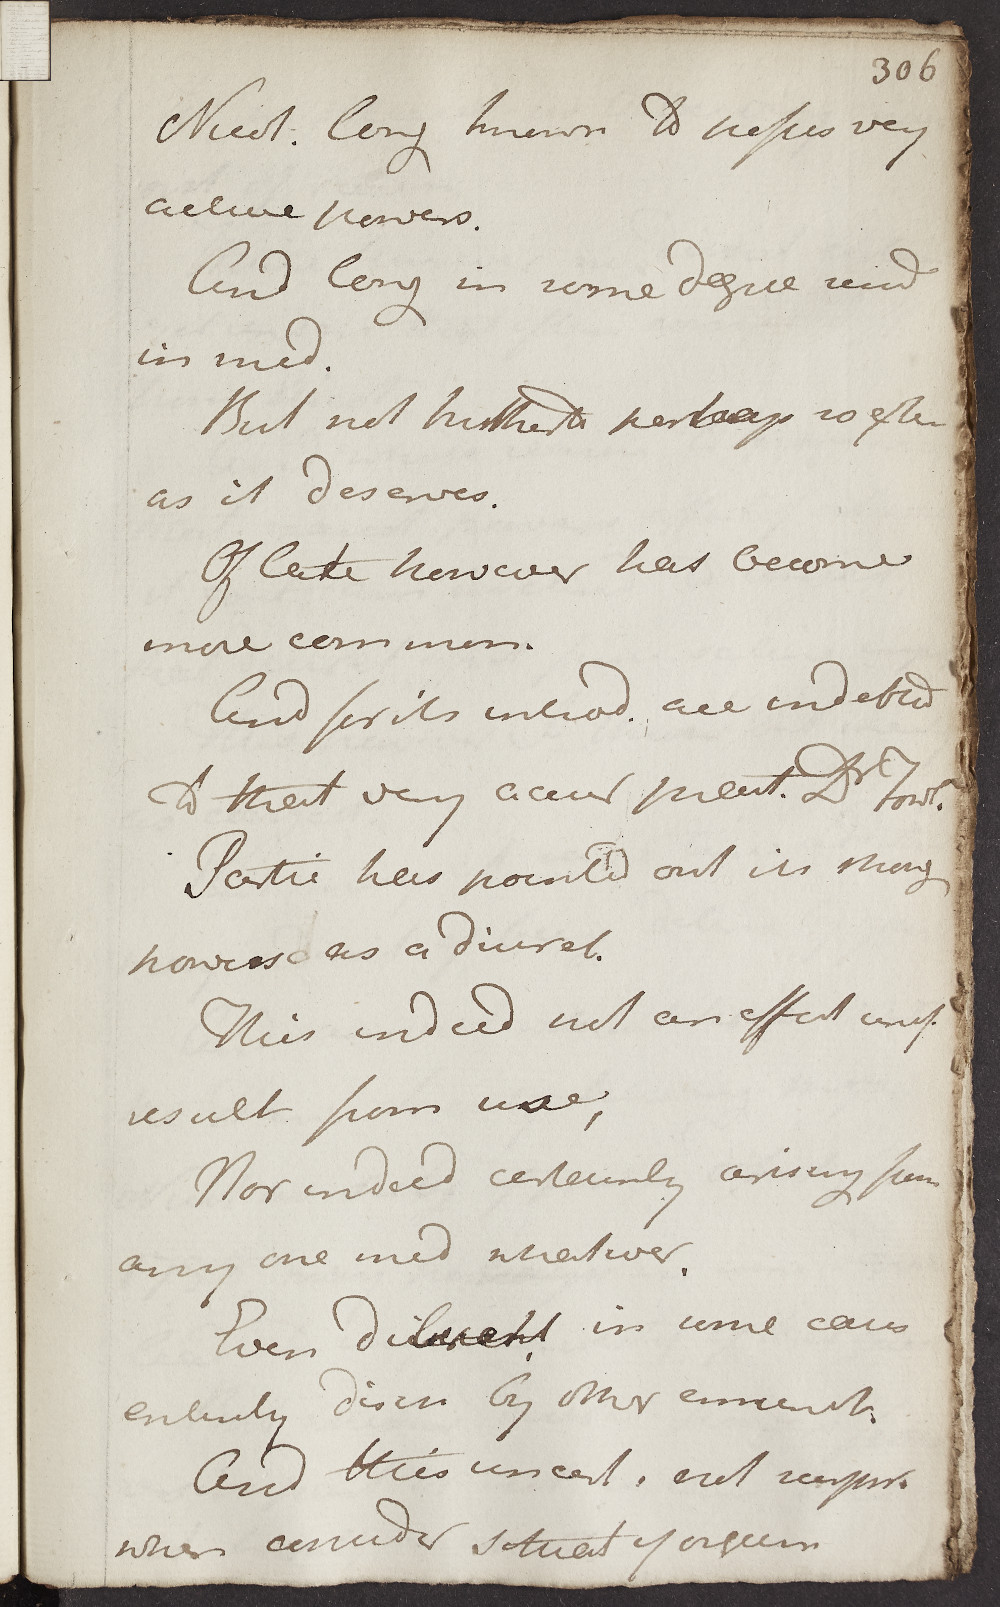 306
Nicot. long known to possess very
active powers.
And long in some degree used
in med.
But not hitherto perhap so often
as it deserves.
Of late however has become
more common.
And for its introd. are indebted
to that very accur pract. Dr Fowl.
Partic has pointed out its strong
powers as a diuret.
This indeed not an effect unif.
result from use,
Nor indeed certainly arising from
any one med whatever.
Even diluent in some cases
entirely disch by other emunct.
And this uncert. not surpr.
when consider situat of organ